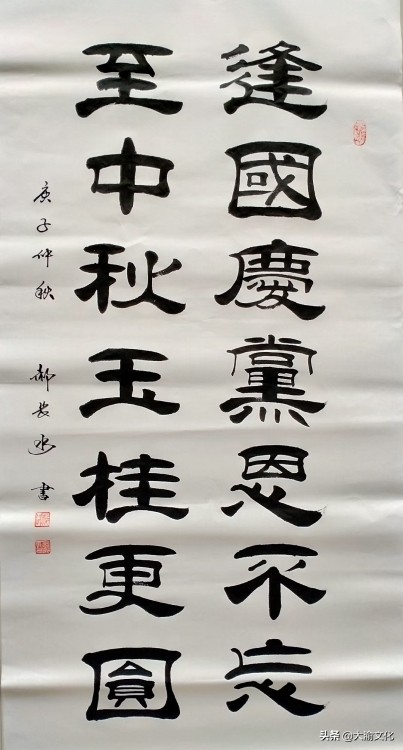 逢國慶黨恩不忘
至中秋玉桂更圓
庚子仲秋 郝長 書
头条 @大瀚文化